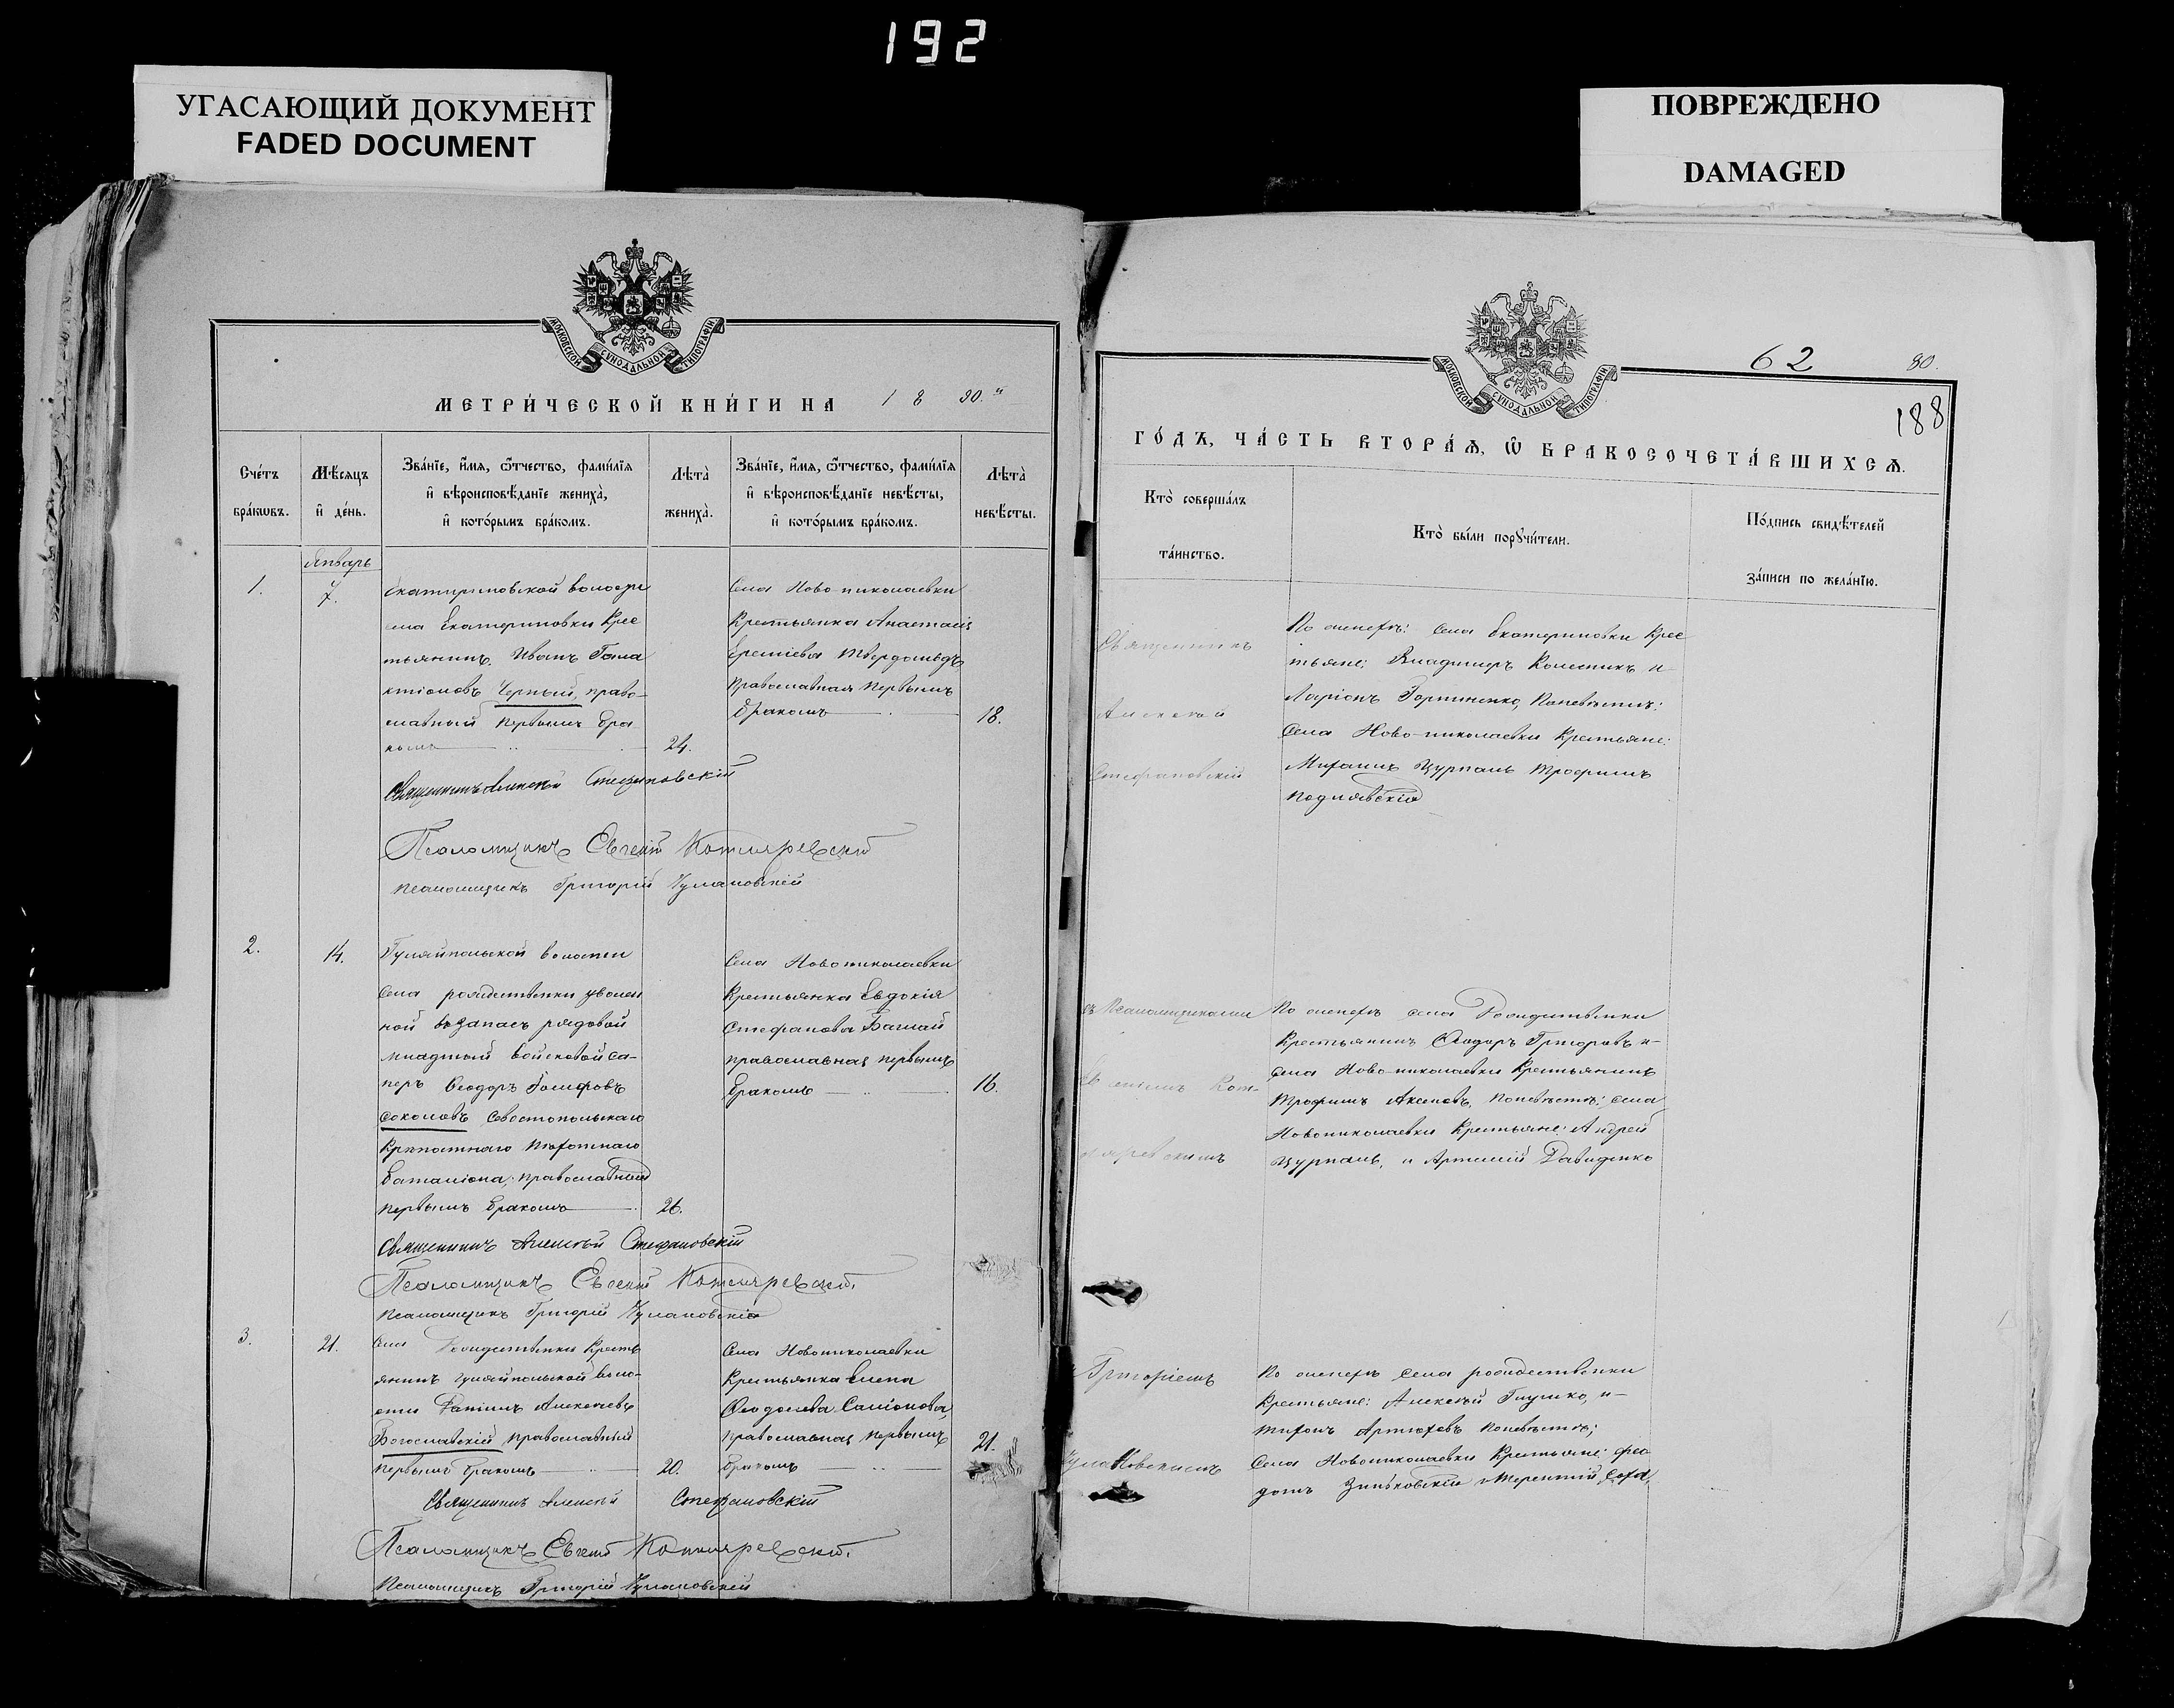 192
УГАСАЮЩИЙ ДОКУМЕНТ
FADED DOCUMENT
ПОВРЕЖДЕНО
DAMAGED
МОСКОВСКОЙ СѴНОДАЛЬНОЙ ТИПОГРАФІИ
МЕТРИ́ЧЕСКОЙ КНИ́ГИ НА 1890.й
Сче́тъ бра́кѡвъ.
Мѣ́сяцъ и҆ де́нь.
Зва́нїе, и҆́мя, ѻ҆́тчество, фами́лїя и҆ вѣроисповѣ́данїе жениха̀, и҆ кото́рымъ бра́комъ.
Лѣта̀ жениха̀.
Зва́нїе, и҆́мя, ѻ҆́тчество, фами́лїя и҆ вѣроисповѣ́данїе невѣ́сты, и҆ кото́рымъ бра́комъ.
Лѣта̀ невѣ́сты.
Январь
1.
7.
Екатериновской волости
села Екатериновки Крес
тьянинъ Иванъ Гала
ктіоновъ Черный, право-
славный первымъ бра
комъ
24.
Села Новониколаевки
Крестьянка Анастасія
Еремѣева
Православная первымъ
бракомъ
18.
Священникъ Алексѣй Стефановскій
Псаломщикъ Евгеній Котляревскій
Псаломщикъ Григорій Чулановскій
2.
14.
Гуляйпольской волости
Села рождественки уволен
ной въ запасъ рядовой
младшый войсковой са-
перъ Ѳеодоръ
Соколовъ Севостопольскаго
Крѣпостнаго Пѣхотнаго
Баталіона, православный
первымъ бракомъ
26.
Села Новониколаевки
Крестьянка Евдокія
Стефанова Баглай
православная первымъ
бракомъ
16.
Священникъ Алексѣй Стефановскій
Псаломщикъ Евгеній Котляревскій.
Псаломщикъ Григорій Чулановскій
3.
21.
Села Рождественки Кресть
янинъ Гуляйпольской воло-
сти Даніилъ Алексѣевъ
Богославскій православный
первымъ бракомъ
20.
Села Новониколаевки
Крестьянка Елена
православная первымъ
бракомъ
21.
Священникъ Алексѣй Стефановскій
Псаломщикъ Евгеній Котляревскій.
Псаломщикъ Григорій Чулановскій
МОСКОВСКОЙ СѴНОДАЛЬНОЙ ТИПОГРАФІИ
62
80.
188
ГО́ДЪ, ЧА́СТЬ ВТОРА́Я, Ѽ БРАКОСОЧЕТА́ВШИХСЯ.
Кто̀ соверша́лъ та́инство.
Кто̀ бы́ли порꙋчи́тели.
По́дпись свидѣ́телей за́писи по жела́нїю.
Священникъ
Алексѣй
Стефановскій
По женихѣ: села Екатериновки Крес
тьяне: Владимиръ Колесникъ и
Ларіонъ Гортиненко, По невѣстѣ:
Села Ново-николаевки Крестьяне:
Михаилъ Цурпалъ Трофимъ
съ Псаломщиками
Евгеніемъ Кот-
ляревскимъ
По женихѣ села Рождественки
Крестьянинъ Ѳеодоръ Григоровъ и
Села Ново-николаевки Крестьянинъ
Трофимъ Аксеновъ, По невѣстѣ: села
Новониколаевки Крестьяне: Андрей
Цурпалъ, и Артемій Давиденко
Григоріемъ
Чулановскимъ
По женихѣ села рождественки
Крестьяне: Алексѣй Глушко, и
Тихонъ Артюховъ По невѣстѣ;
Села Новониколаевки Крестьяне: Фео
дотъ Зиньковскій Терентій